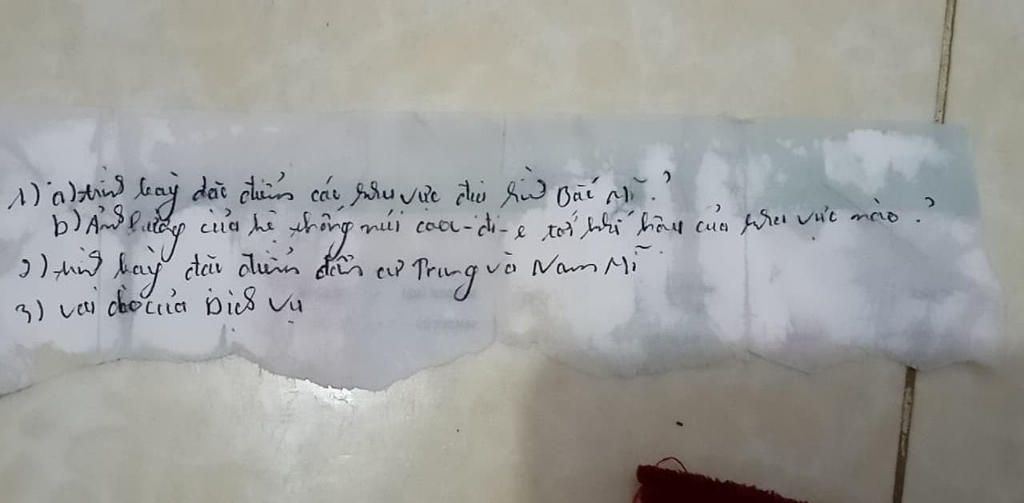 1) a) trình bày đặc điểm các khu vực địa hình Bắc Mĩ?
b) Ảnh hưởng của hệ thống núi cooc-đi-e tới khí hậu của khu vực nào?
2) trình bày đặc điểm dân cư Trung và Nam Mĩ
3) vai trò của Dịch vụ